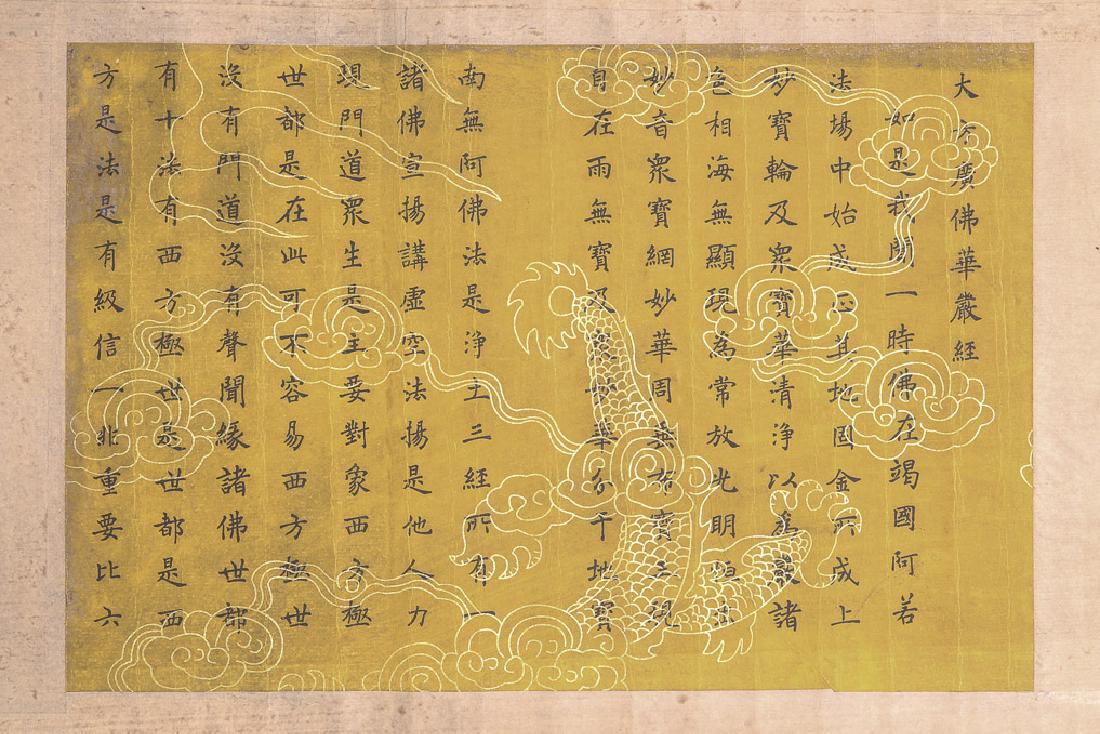 大方廣佛華嚴經
如是我聞一時佛在竭國阿若
法場中始成正其地固金所成上
妙寶輪及衆寶華清淨以為嚴諸
色相海無顯現為常放光明恒出
妙音衆寶網妙華周垂布寶三現
自在雨無寶及衆妙華分干地寶
南無阿佛法是淨土三經所有一
諸佛宣揚講虛空法揚是他人力
現門道衆生是主要對象西方極
世都是在此可不容易西方極世
沒有門道沒有聲聞緣諸佛世都
有十法有西方極世是世都是西
方是法是有級信一非重要比六